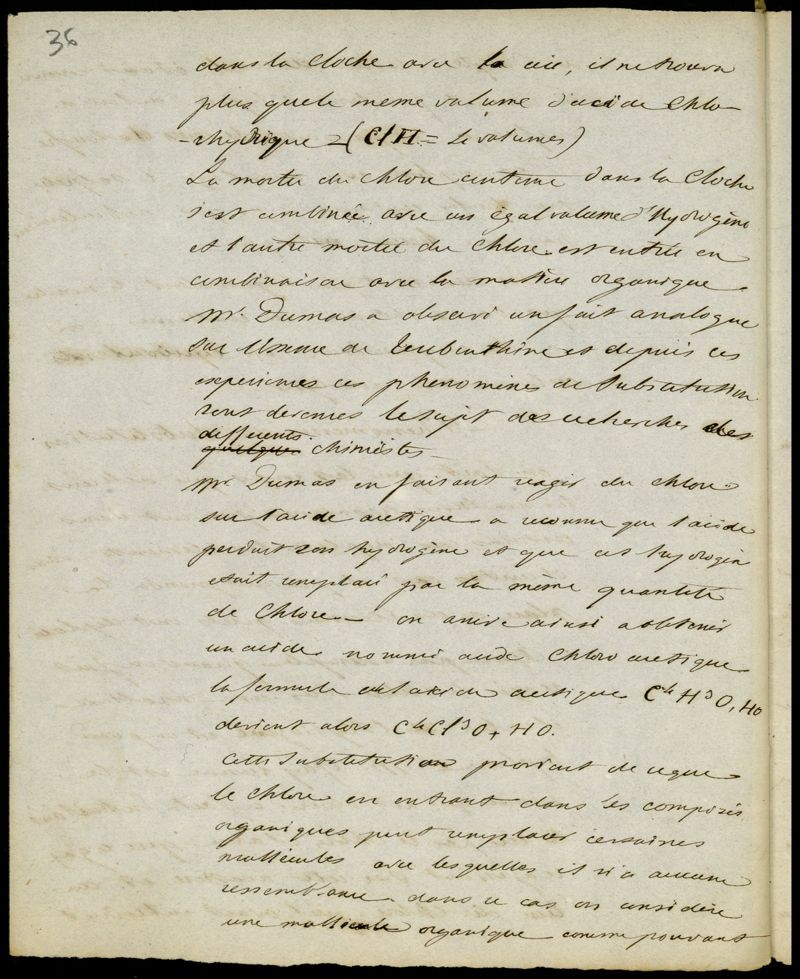 36
dans la cloche avec la cire, il ne trouva
plus que le même volume d'acide chlo-
-rhydrique = (ClH = 4 volumes)
La moitié du chlore contenue dans la cloche
s'est combinée avec un égal volume d'hydrogène
et l'autre moitié du chlore est entrée en
combinaison avec la matière organique.
Mr. Dumas a observé un fait analogue
sur l'essence de terebenthine et depuis ces
experiences ces phenomènes de substitution
sont devenues le sujet des recherches des
differents
quelques chimistes -
Mr. Dumas en faisant reagir du chlore
sur l'acide acetique a reconnu que l'acide
perdait son hydrogène et que cet hydrogèn
etait remplacé par la même quantité
de chlore - on arrive ainsi a obtenir
un acide nommé acide chloro acetique
la formule de l'acide acetique C4 H3 O3, HO
devient alors C4 Cl3 O3 + HO.
Cette substitution provient de ce que
le chlore en entrant dans les composés
organiques peut remplacer certaines
mollécules avec lesquelles il n'a aucune
ressemblance. dans ce cas on considère
une mollécule organique comme pouvant